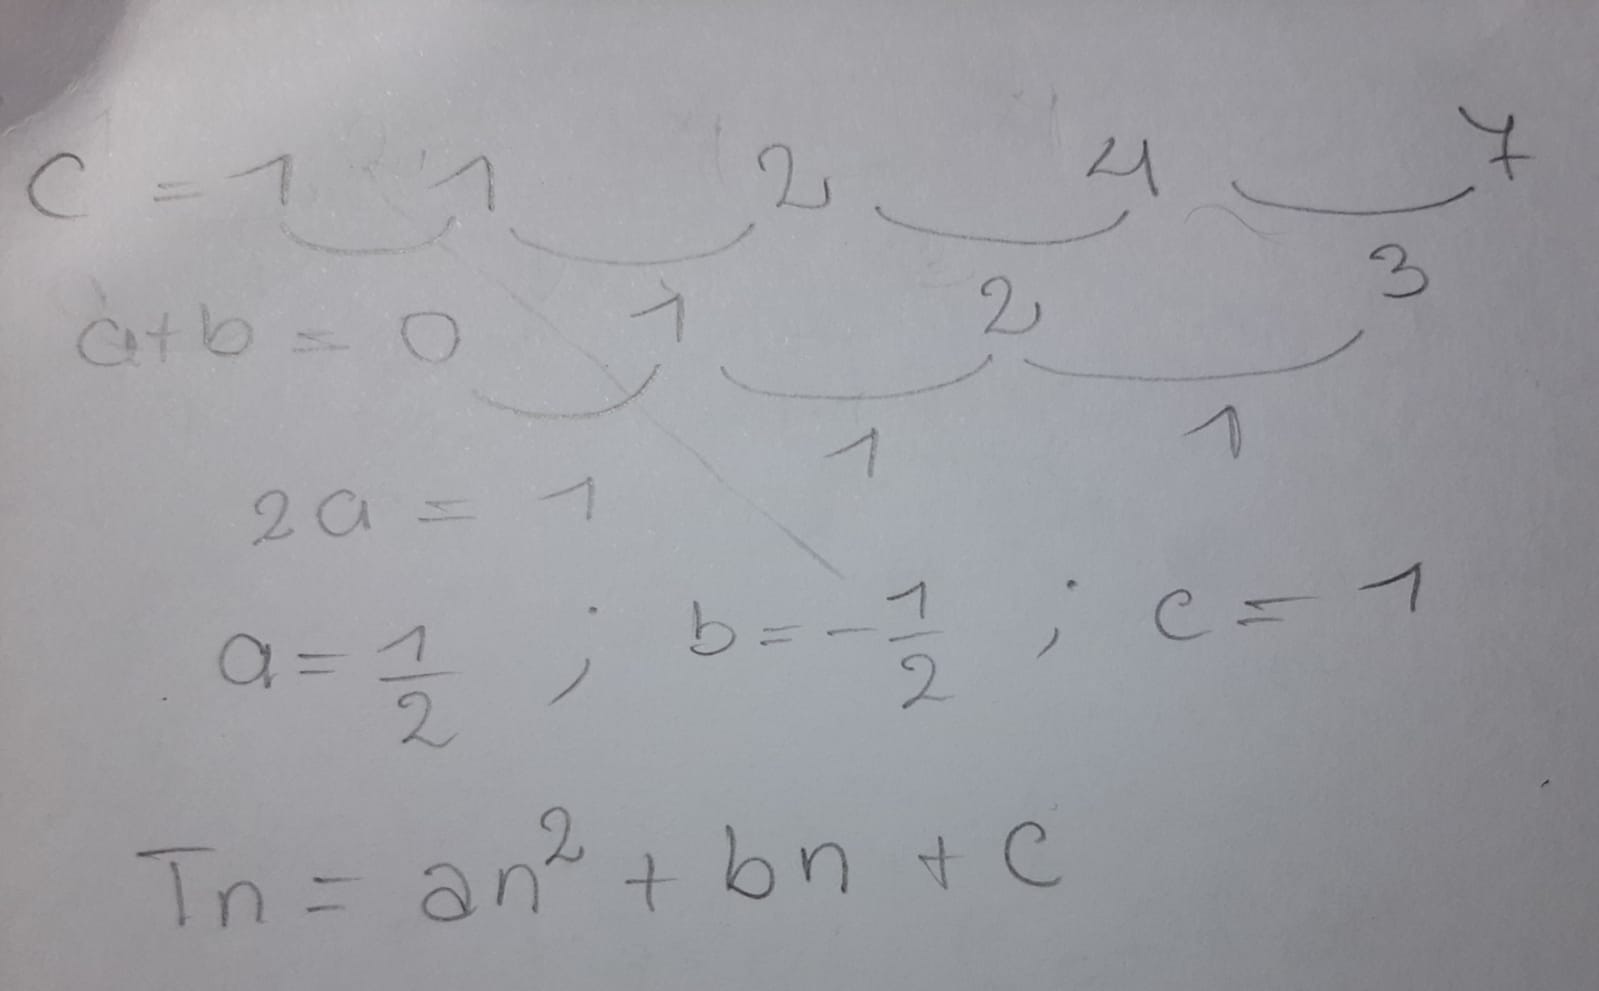 C = 1 1 2 4 7
a+b = 0 1 2 3
2a = 1 1 1
a = 1/2 ; b = -1/2 ; c = 1
Tn = an² + bn + c